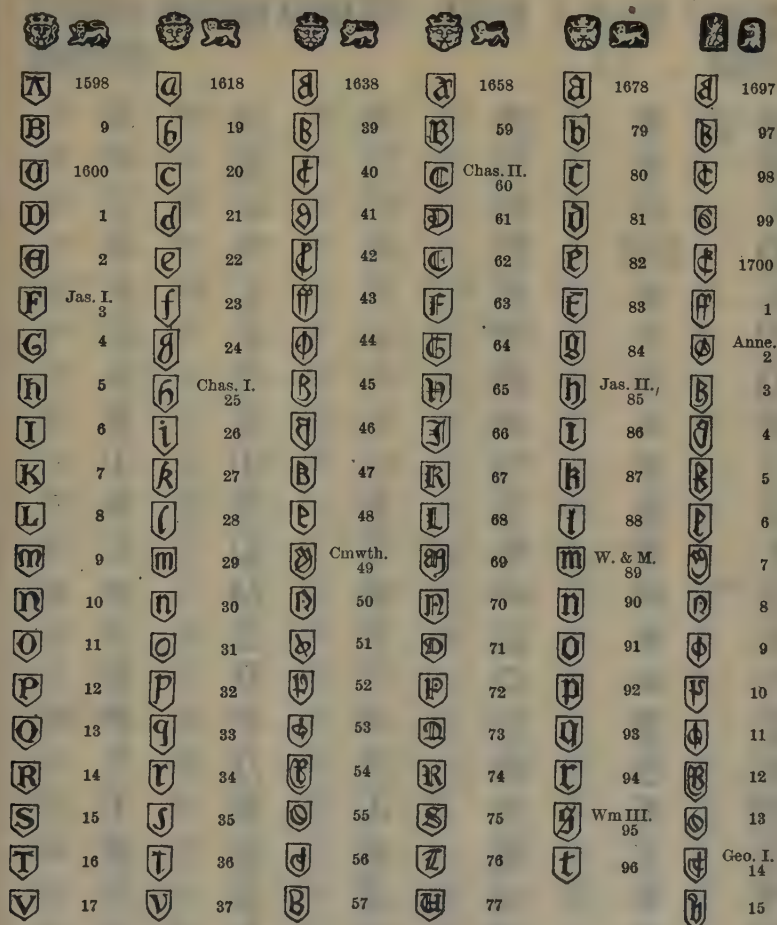 A 1598 a 1618 1638 1658 a 1678 1697
B 9 b 19 39 B 59 b 79 97
1600 c 20 40 C Chas. II. 60 80 98
D 1 d 21 41 D 61 d 81 99
2 e 22 42 62 e 82 1700
F Jas. I. 3 f 23 43 F 63 83 1
G 4 g 24 44 G 64 g 84 Anne. 2
h 5 h Chas. I. 25 45 65 h Jas. II., 85 3
I 6 i 26 46 66 86 4
K 7 k 27 47 K 67 k 87 5
L 8 l 28 48 L 68 l 88 6
m 9 m 29 Cmwth. 49 69 m W. & M. 89 7
n 10 n 30 50 70 n 90 8
O 11 o 31 51 71 o 91 9
P 12 p 32 52 P 72 p 92 10
Q 13 q 33 53 73 q 93 11
R 14 r 34 54 R 74 r 94 12
S 15 35 55 S 75 Wm III. 95 13
T 16 36 56 76 t 96 Geo. I. 14
V 17 V 37 57 77 15